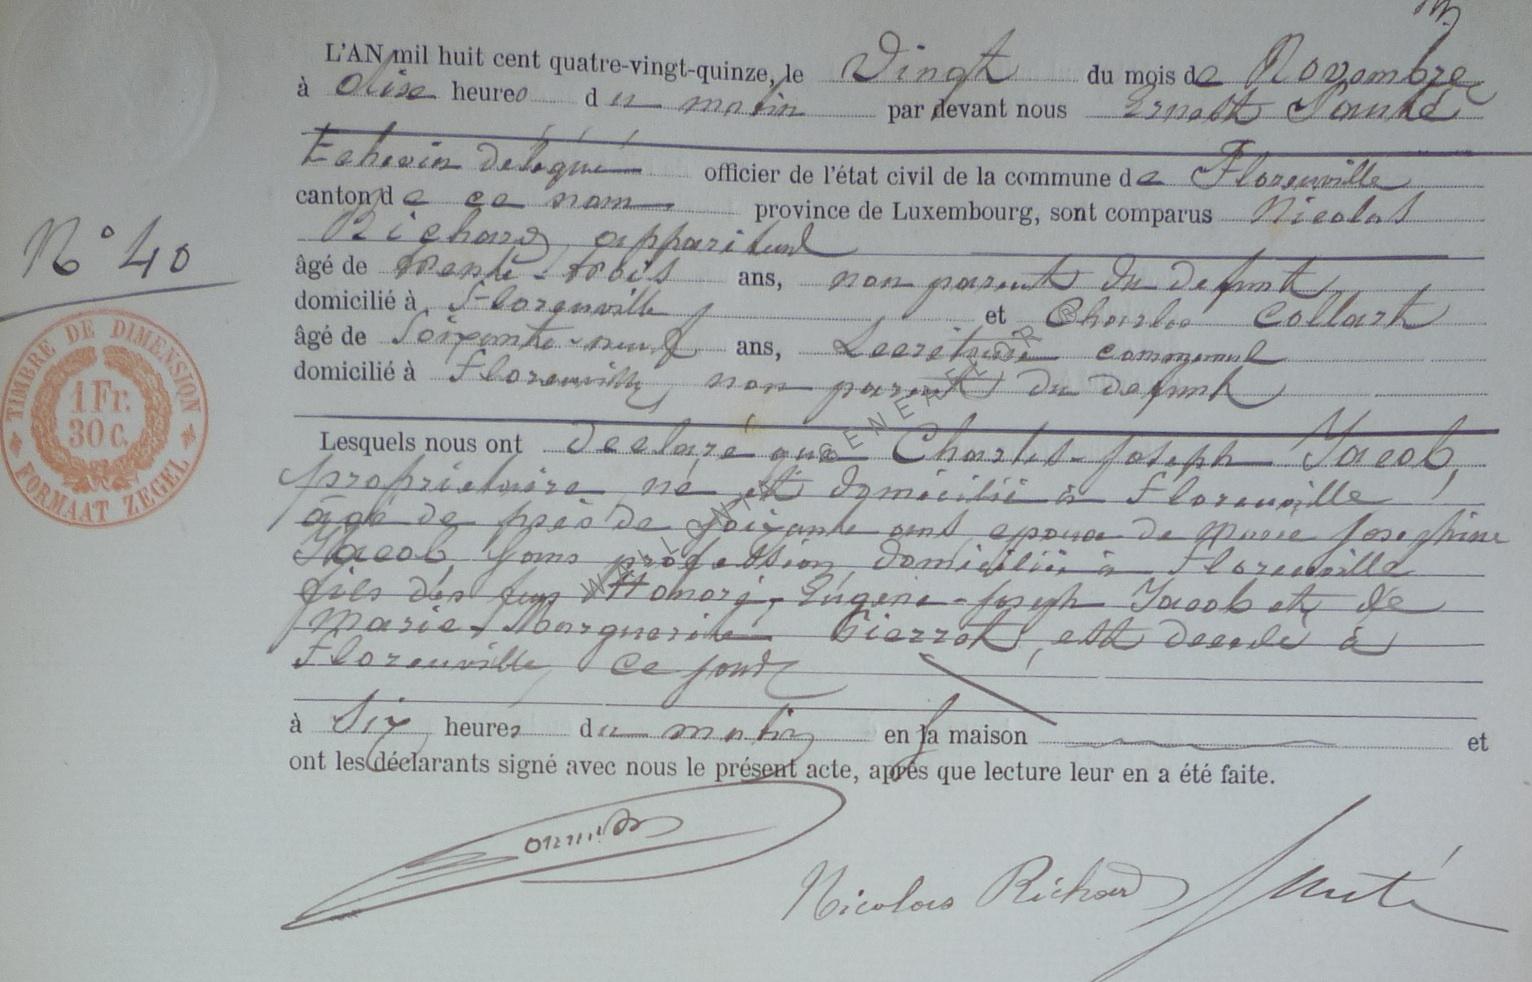 L'AN mil huit cent quatre-vingt-quinze, le Vingt du mois de Novembre
à dix heures du matin par devant nous Ernest Santé
Echevin délégué officier de l'état civil de la commune de Florenville
canton de ce nom province de Luxembourg, sont comparus Nicolas
Richard, appariteur
âgé de trente-trois ans, non parent du defunt
domicilié à Florenville et Charles Collart
âgé de Soixante-neuf ans, Secrétaire communal
domicilié à Florenville, non parent du defunt
N° 40
TIMBRE DE DIMENSION
1 Fr.
30 C.
FORMAAT ZEGEL
Lesquels nous ont déclaré que Charles-Joseph Jacob,
propriétaire né et domicilié à Florenville
âgé de près de soixante ans, époux de Marie Josephine
Jacob, sans profession, domiciliée à Florenville
fils des feus Honoré-Eugène-Joseph Jacob et de
Marie-Marguerite Pierrot, est décédé à
Florenville, ce jour
à Six heures du matin en sa maison et
ont les déclarants signé avec nous le présent acte, après que lecture leur en a été faite.
Nicolas Richard Santé